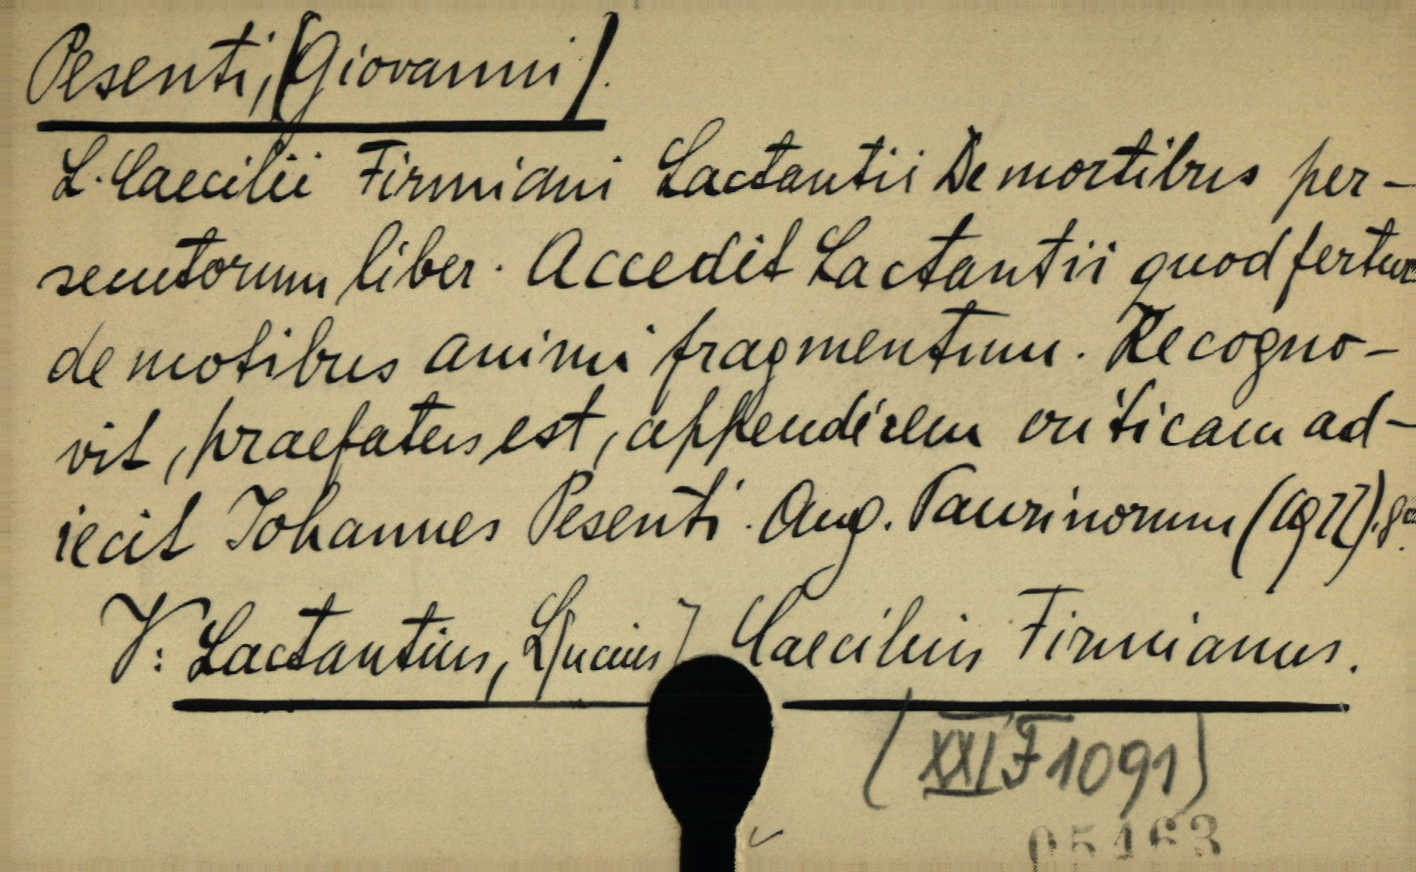 Pesenti, [Giovanni].
L. Caecilii Firmiani Lactantii De mortibus per-
secutorum liber. Accedit Lactantii quod fertur
de motibus animi fragmentum. Recogno-
vit, praefatus est, appendicem criticam ad-
iecit Iohannes Pesenti. Aug. Taurinorum (1922). 8º.
V: Lactantius, L[ucius] Caecilius Firmianus.
(XXI F 1091)
05463